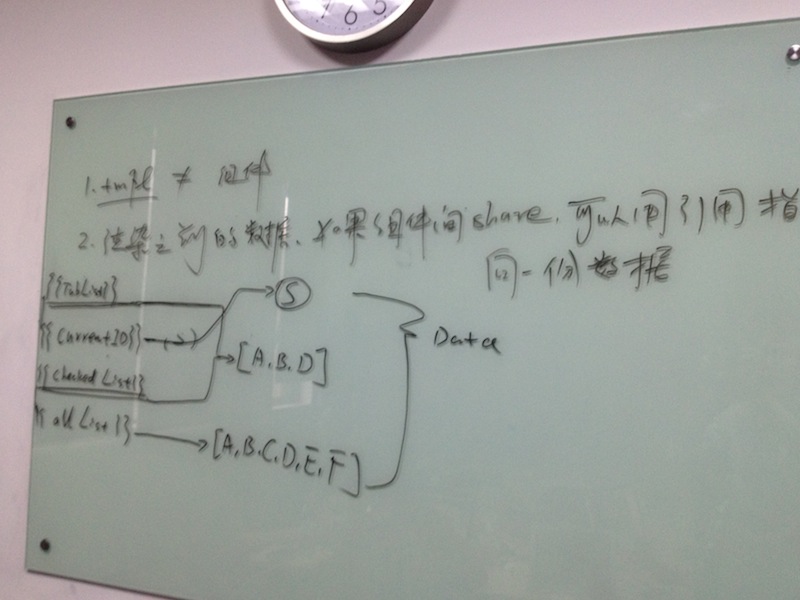 7 6 5
1. tmpl ≠ 组件
2. 渲染之前的数据、如果组件间share、可以用引用指
向一份数据
{{TabList}}
{{CurrentID}} → S
{{Checked List}} → [A, B, D]
{{all List}} → [A, B, C, D, E, F]
Data